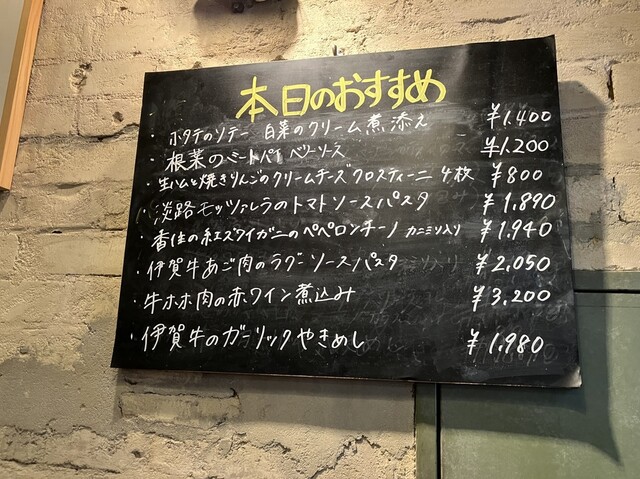 本日のおすすめ
・ホタテのソテー 白菜のクリーム煮添え ¥1.400
・根菜のミートパイ ベリーソース ¥1.200
・生ハムと焼きりんごのクリームチーズクロスティーニ 4枚 ¥800
・淡路モッツァレラのトマトソースパスタ ¥1.890
・香住の紅ズワイガニのペペロンチーノ カニミソ入り ¥1.940
・伊賀牛あご肉のラグーソースパスタ ¥2,050
・牛ホホ肉の赤ワイン煮込み ¥3,200
・伊賀牛のガーリックやきめし ¥1,980